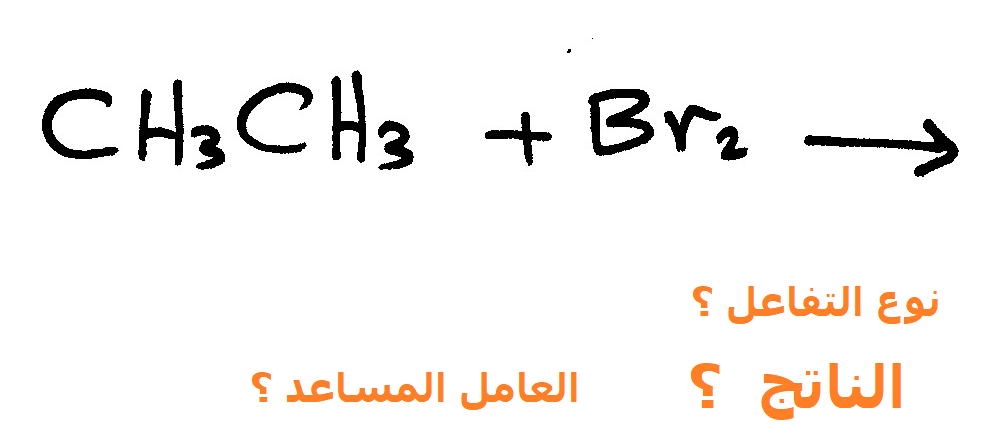 CH₃CH₃ + Br₂ →
نوع التفاعل ؟
الناتج ؟ العامل المساعد ؟